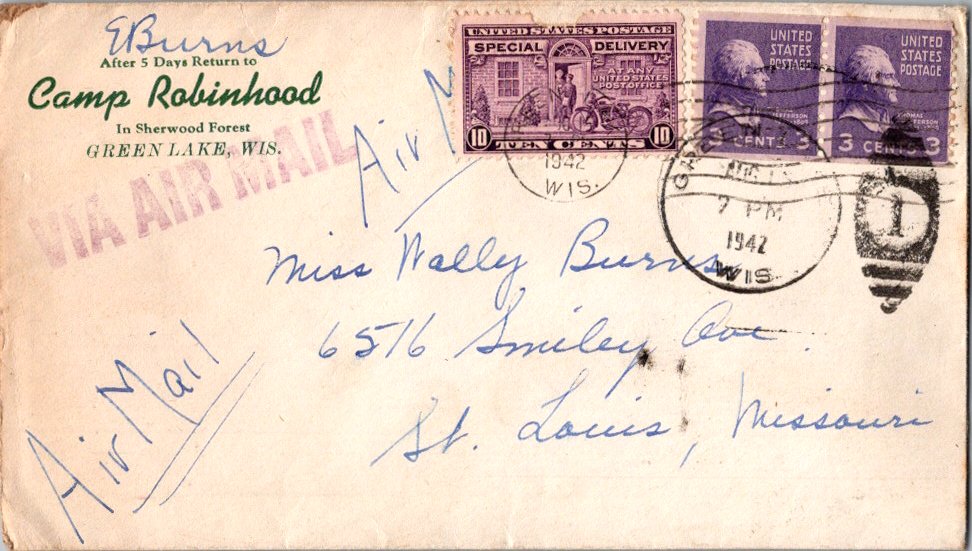 EBurns
After 5 Days Return to
Camp Robinhood
In Sherwood Forest
GREEN LAKE, WIS.
VIA AIR MAIL
Air M
UNITED STATES POSTAGE
SPECIAL DELIVERY
AT ANY
UNITED STATES
POST OFFICE
10 10
TEN CENTS
UNITED
STATES
POSTAGE
THOMAS
JEFFERSON
3 CENTS 3
UNITED
STATES
POSTAGE
THOMAS
JEFFERSON
3 CENTS 3
1942
WIS.
AUG
7 PM
1942
WIS
1
Miss Wally Burns
6516 Smiley Ave.
St. Louis, Missouri
Air Mail